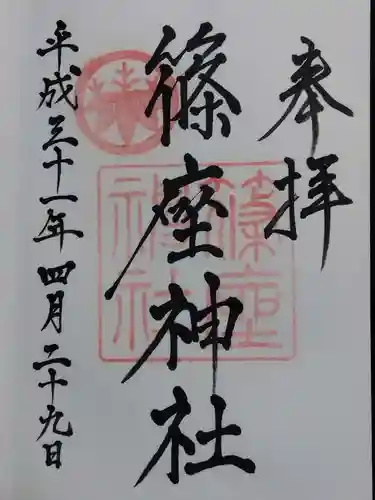 奉拝
篠座神社
平成三十一年四月二十九日
篠座
神社